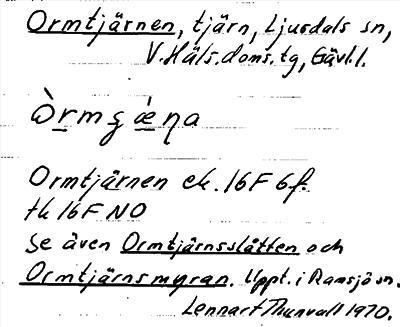 Ormtjärnen, tjärn, Ljusdals sn,
V.Häls.doms.tg, Gävl.l.
Òrmʒǽṇa
Ormtjärnen ek. 16F 6f.
tk 16F NO
Se även Ormtjärnsslåtten och
Ormtjärnsmyran. Uppt. i Ramsjö sn.
Lennart Thunvall 1970.